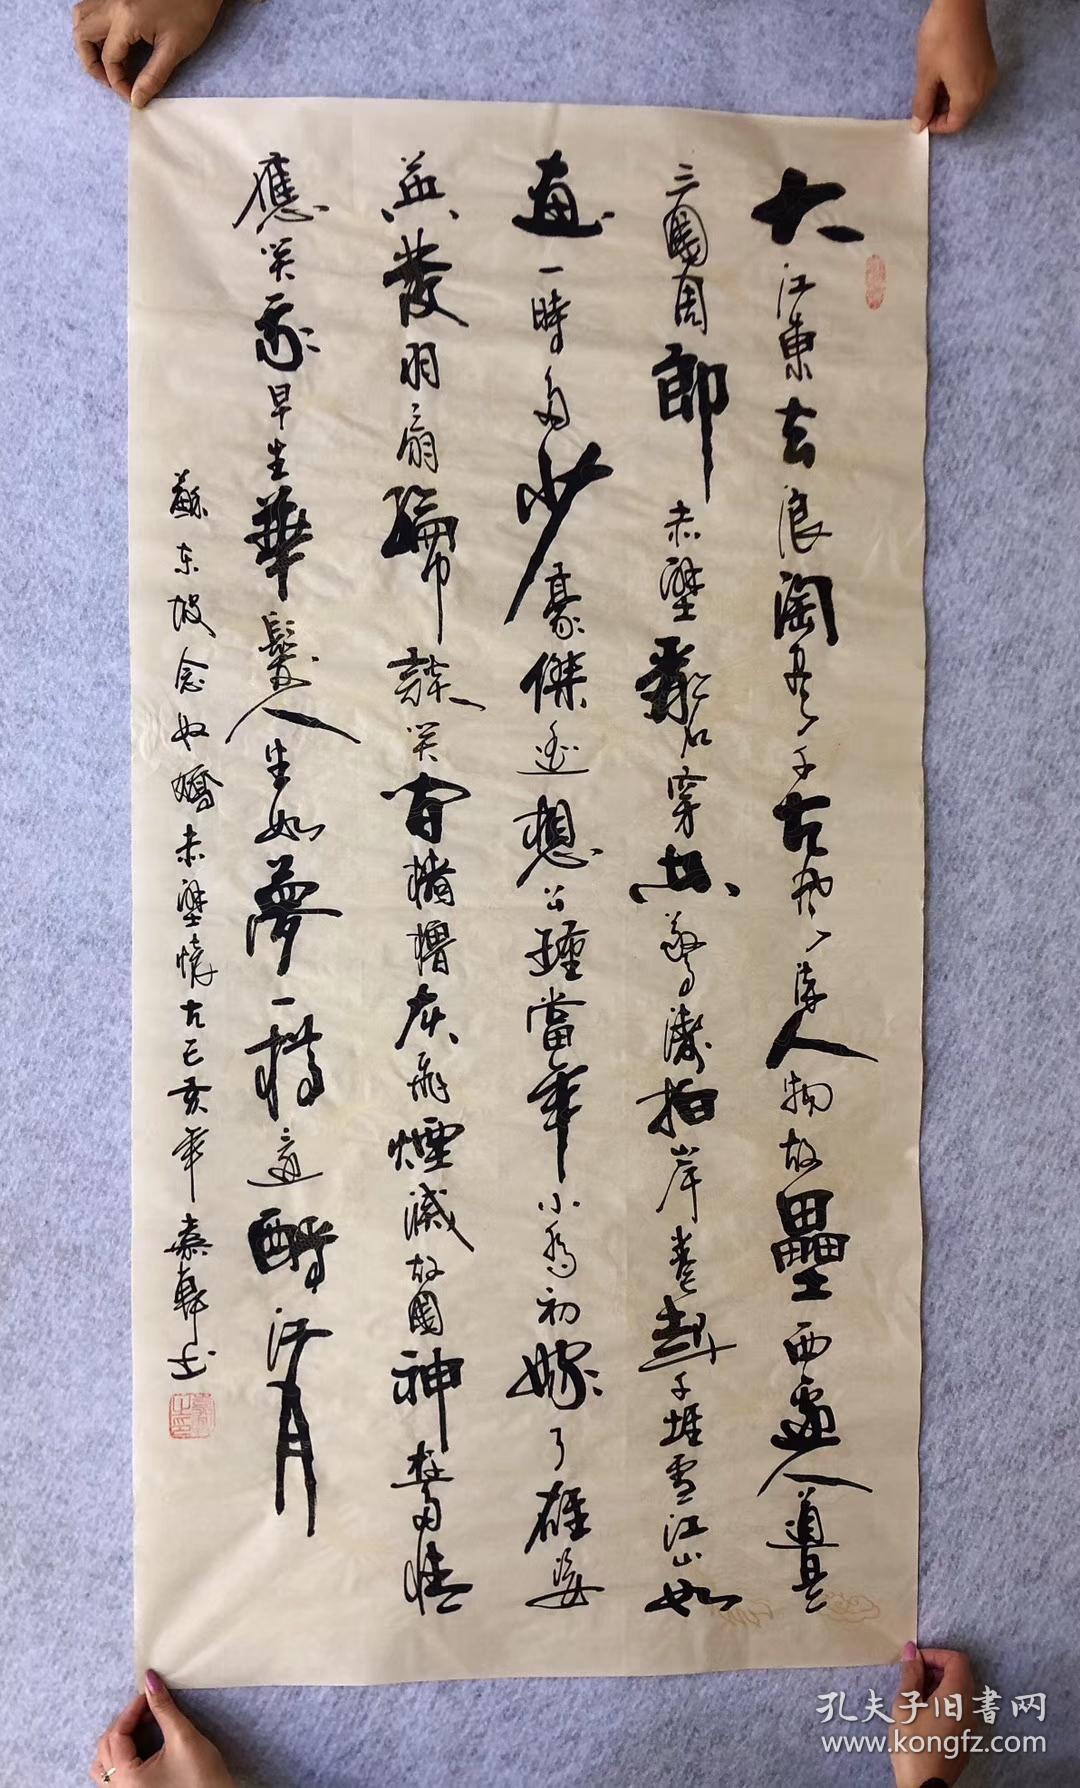 大江東去浪淘尽千古风流人物故壘西邊人道是
三國周郎赤壁亂石穿空驚濤拍岸卷起千堆雪江山如
畫一時多少豪傑遙想公瑾當年小喬初嫁了雄姿
英發羽扇綸巾談笑间檣櫓灰飛煙滅故國神遊多情
應笑我早生華髮人生如夢一樽還酹江月
蘇东坡念奴嬌赤壁懷古己亥年嘉軒书
孔夫子旧書网
www.kongfz.com